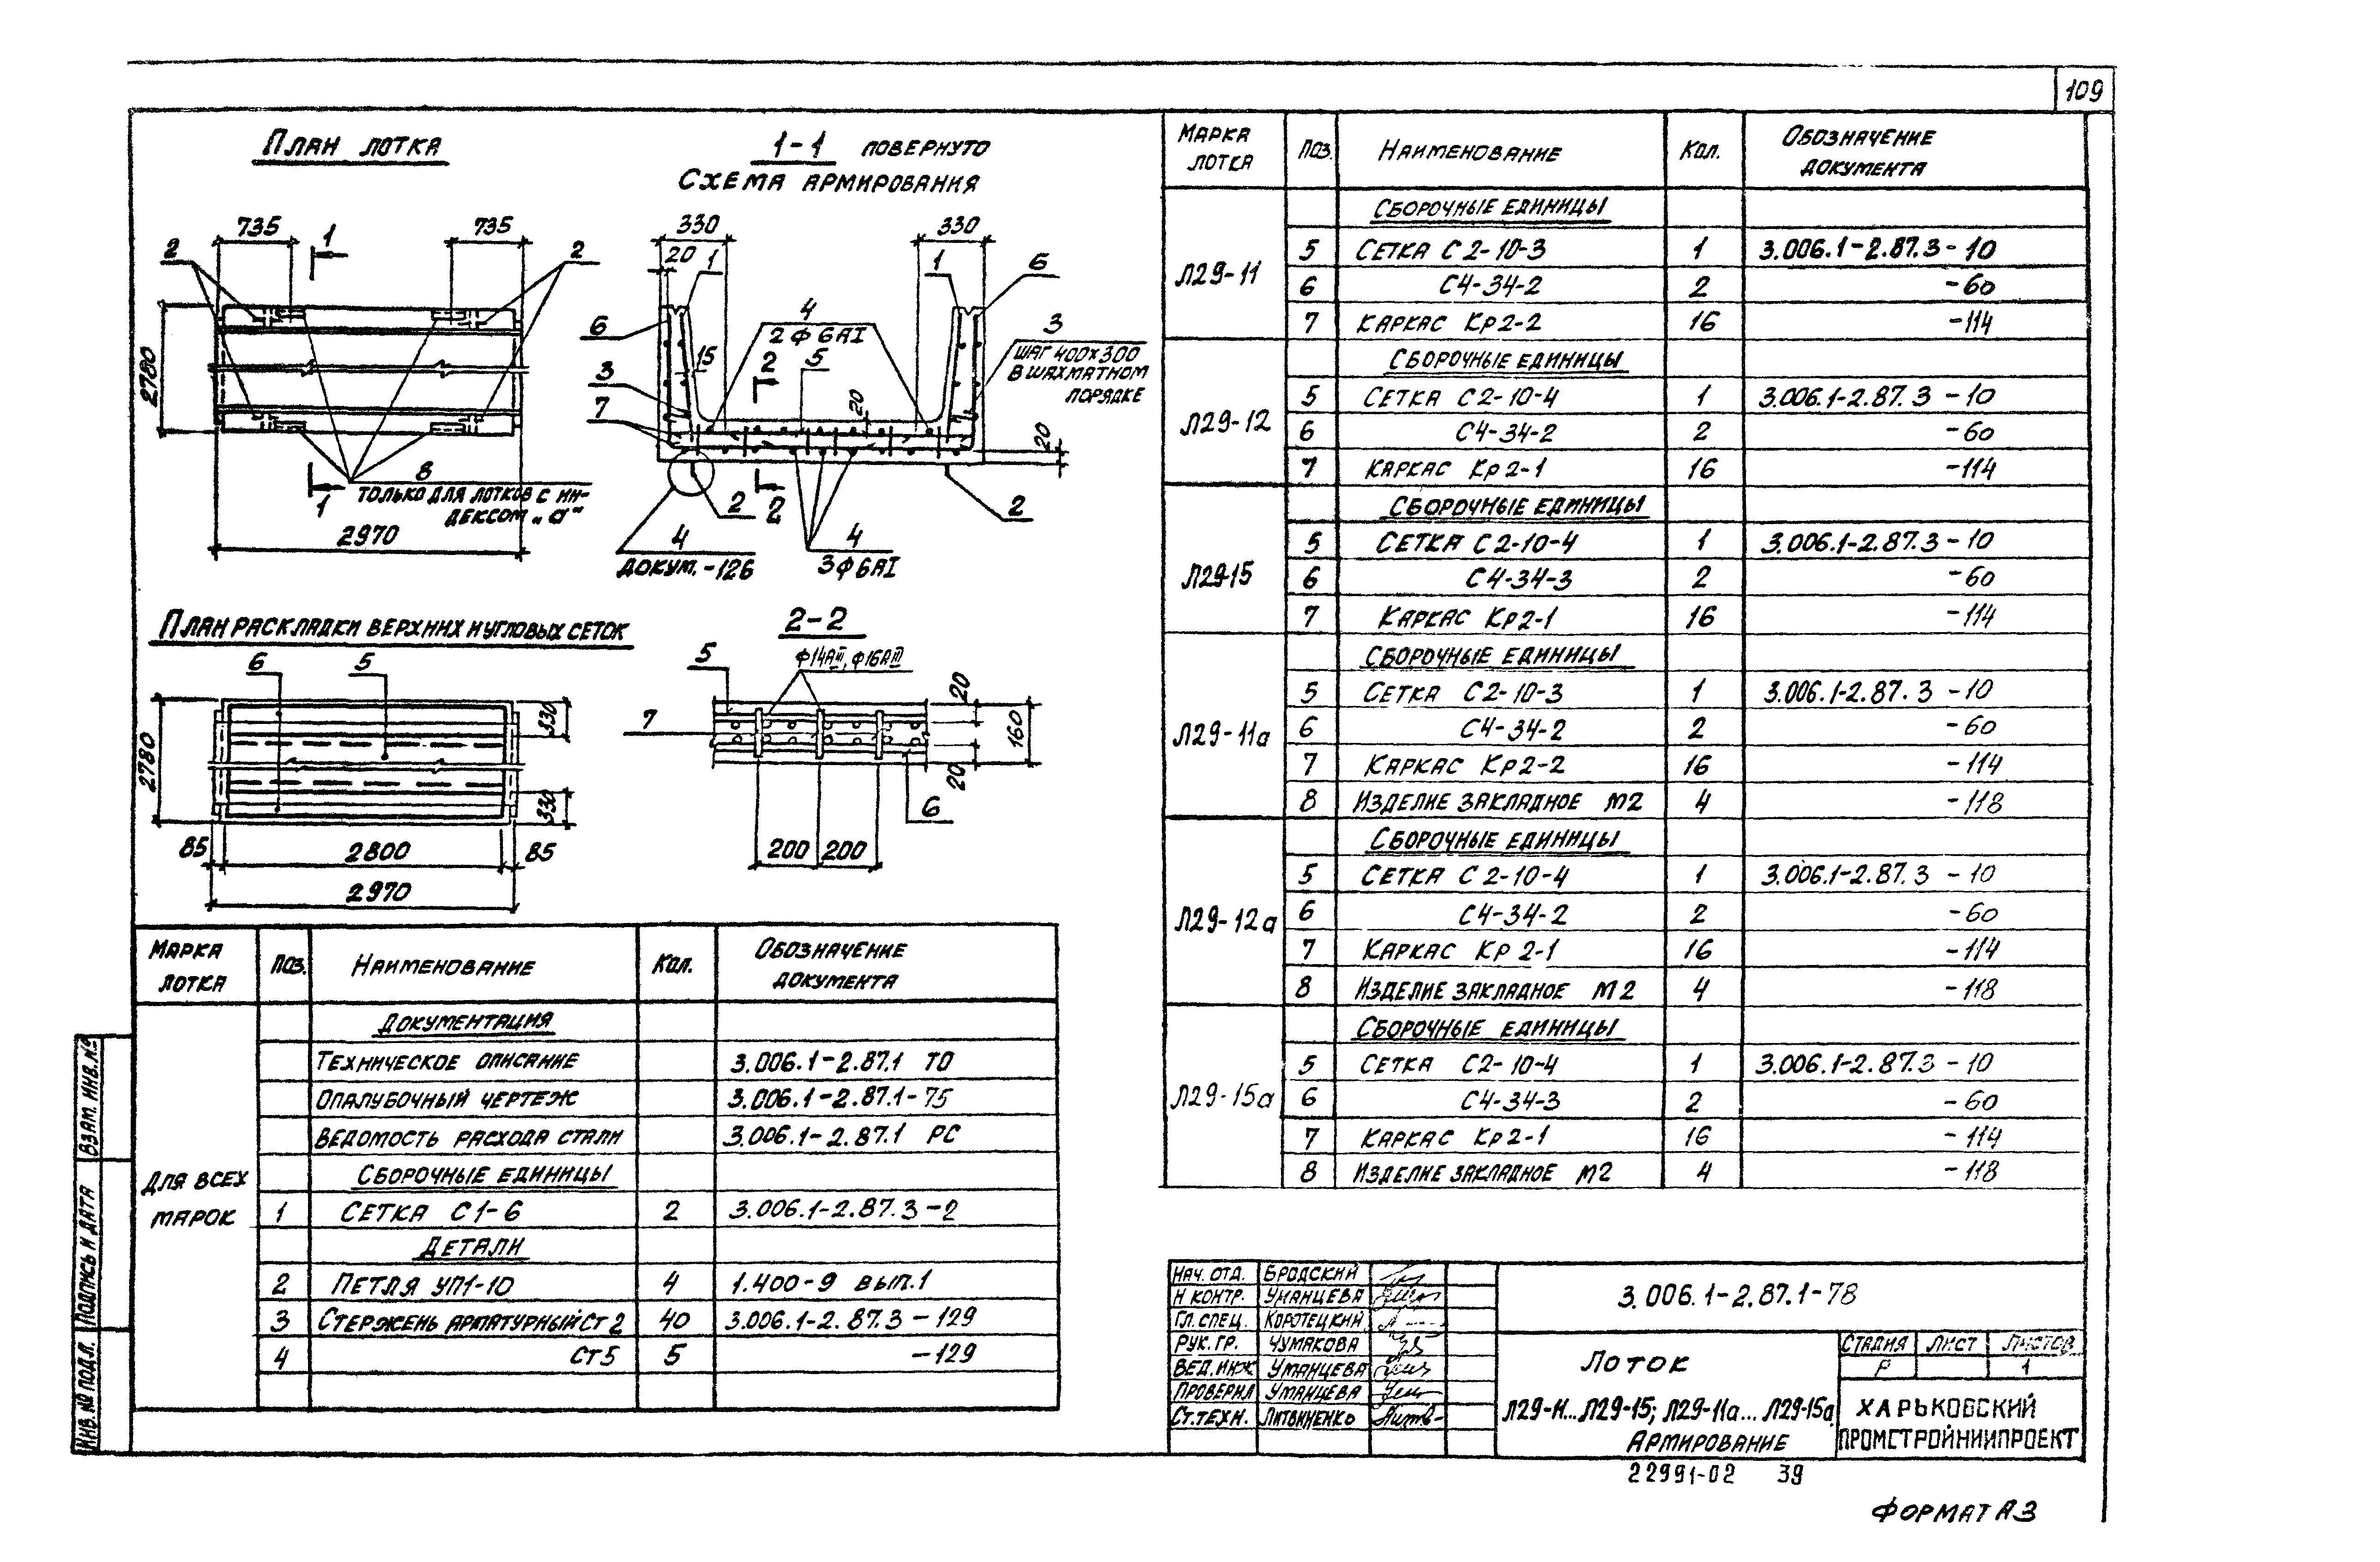 109
План лотка
1-1 повернуто
Схема армирования
735
735
2
1
2
2780
8
только для лотков с ин-
дексом „а"
1
2970
330
330
20
1
1
6
6
4
2ф6АI
3
шаг 400×300
в шахматном
порядке
15
2
5
3
7
20
20
2
2
2
4
докум. -126
4
3ф6АI
План раскладки верхних и угловых сеток
6
5
330
2780
330
85
2800
85
2970
2-2
5
ф14АIII, ф16АIII
7
20
160
20
6
200 200
Марка лотка Поз. Наименование Кол. Обозначение документа
Для всех марок
Документация
Техническое описание 3.006.1-2.87.1 ТО
Опалубочный чертеж 3.006.1-2.87.1-75
Ведомость расхода стали 3.006.1-2.87.1 РС
Сборочные единицы
1 Сетка С1-6 2 3.006.1-2.87.3-2
Детали
2 Петля УП1-10 4 1.400-9 вып.1
3 Стержень арматурный Ст2 40 3.006.1-2.87.3-129
4 Ст5 5 -129
Марка лотка Поз. Наименование Кол. Обозначение документа
Л29-11
Сборочные единицы
5 Сетка С2-10-3 1 3.006.1-2.87.3-10
6 С4-34-2 2 -60
7 Каркас Кр2-2 16 -114
Л29-12
Сборочные единицы
5 Сетка С2-10-4 1 3.006.1-2.87.3-10
6 С4-34-2 2 -60
7 Каркас Кр2-1 16 -114
Л29-15
Сборочные единицы
5 Сетка С2-10-4 1 3.006.1-2.87.3-10
6 С4-34-3 2 -60
7 Каркас Кр2-1 16 -114
Л29-11а
Сборочные единицы
5 Сетка С2-10-3 1 3.006.1-2.87.3-10
6 С4-34-2 2 -60
7 Каркас Кр2-2 16 -114
8 Изделие закладное М2 4 -118
Л29-12а
Сборочные единицы
5 Сетка С2-10-4 1 3.006.1-2.87.3-10
6 С4-34-2 2 -60
7 Каркас Кр2-1 16 -114
8 Изделие закладное М2 4 -118
Л29-15а
Сборочные единицы
5 Сетка С2-10-4 1 3.006.1-2.87.3-10
6 С4-34-3 2 -60
7 Каркас Кр2-1 16 -114
8 Изделие закладное М2 4 -118
Взам. инв. №
Подпись и дата
Инв. № подл.
Нач. отд. Бродский
Н контр. Уманцева
Гл. спец. Коротецкий
Рук. гр. Чумакова
Вед. инж Уманцева
Проверил Уманцева
Ст. техн. Литвиненко
3.006.1-2.87.1-78
Лоток
Л29-11...Л29-15; Л29-11а...Л29-15а
Армирование
Стадия Лист Листов
Р 1
Харьковский
Промстройниипроект
22991-02 39
Формат А3